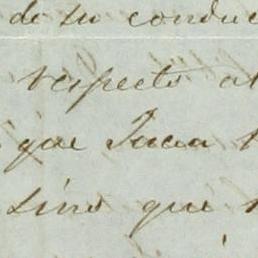 de su conduc
respecto al
que Juan
sino que